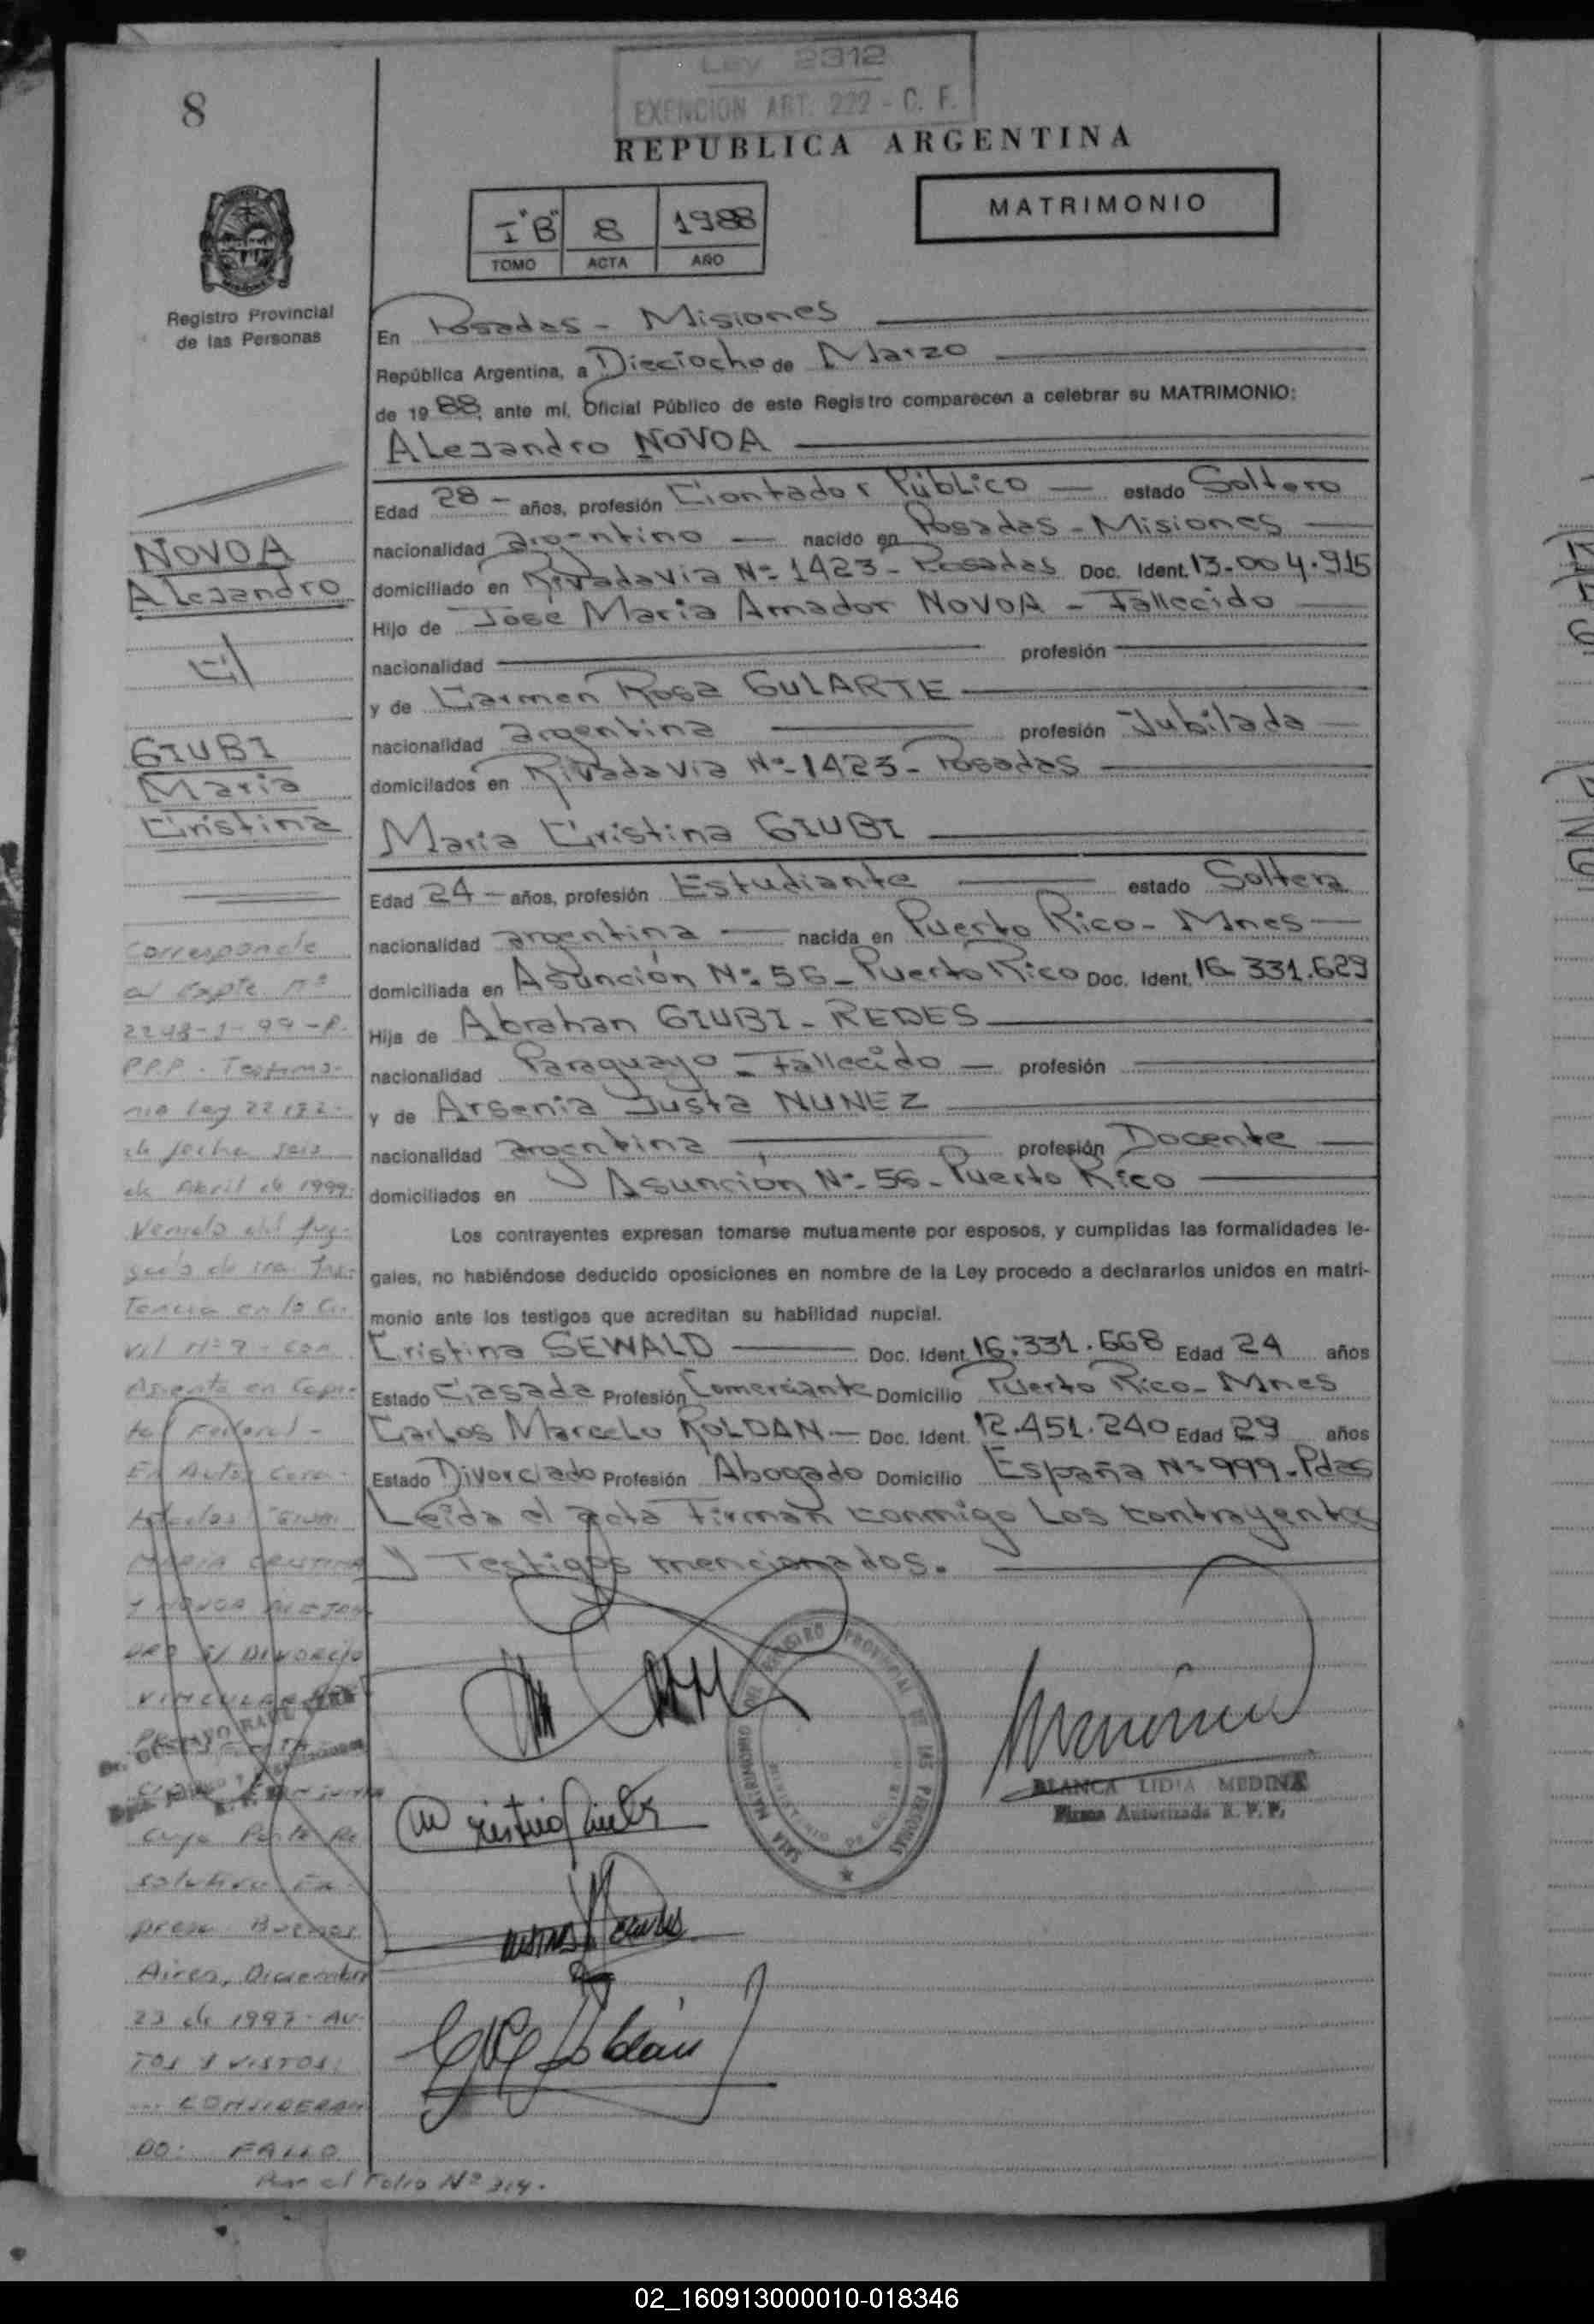 8
Ley 2312
EXENCION ART. 222 - C. F.
REPUBLICA ARGENTINA
MATRIMONIO
I "B" 8 1988
TOMO ACTA AÑO
Registro Provincial
de las Personas
En Posadas - Misiones
República Argentina, a Dieciocho de Marzo
de 1988, ante mí, Oficial Público de este Registro comparecen a celebrar su MATRIMONIO:
Alejandro NOVOA
Edad 28 - años, profesión Contador Público — estado Soltero
nacionalidad argentino — nacido en Posadas - Misiones
domiciliado en Rivadavia Nº 1423 - Posadas Doc. Ident. 13.004.915
Hijo de José Maria Amador NOVOA - Fallecido
nacionalidad profesión
y de Carmen Rosa GULARTE
nacionalidad argentina profesión Jubilada
domicilados en Rivadavia Nº 1423 - Posadas
Maria Cristina GIUBI
Edad 24 - años, profesión Estudiante estado Soltera
nacionalidad argentina — nacida en Puerto Rico - Mnes
domiciliada en Asunción Nº 56 - Puerto Rico Doc. Ident. 16.331.629
Hija de Abrahan GIUBI - REDES
nacionalidad Paraguayo - Fallecido — profesión
y de Arsenia Justa NUNEZ
nacionalidad argentina profesión Docente
domiciliados en Asunción Nº 56 - Puerto Rico
Los contrayentes expresan tomarse mutuamente por esposos, y cumplidas las formalidades le-
gales, no habiéndose deducido oposiciones en nombre de la Ley procedo a declararlos unidos en matri-
monio ante los testigos que acreditan su habilidad nupcial.
Cristina SEWALD Doc. Ident. 16.331.668 Edad 24 años
Estado Casada Profesión Comerciante Domicilio Puerto Rico - Mnes
Carlos Marcelo ROLDAN — Doc. Ident. 12.451.240 Edad 29 años
Estado Divorciado Profesión Abogado Domicilio España Nº 999 - Pdas
Leída el acta Firman conmigo Los contrayentes
y Testigos mencionados.
NOVOA
Alejandro
C/
GIUBI
Maria
Cristina
Corresponde
al Expte Nº
2248-1-99-R.
P.P.P. Testimo-
nio Ley 22.172
de fecha seis
de Abril de 1999
Venido del Juz-
gado de 1ra Ins-
tancia en lo Ci-
vil Nº 9 - con
Asiento en Capi-
tal Federal -
En Autos Cara-
tulados "GIUBI
MARIA CRISTINA
Y NOVOA ALEJAN-
DRO S/ DIVORCIO
VINCULAR
cuya Parte Re
solutiva Ex
presa Buenos
Aires, Diciembre
23 de 1997. AU-
TOS Y VISTOS;
... CONSIDERAN
DO: FALLO
Pasa el Folio Nº 314.
SALA MATRIMONIO DEL REGISTRO PROVINCIAL DE LAS PERSONAS
BLANCA LIDIA MEDINA
Firma Autorizada R. P. P.
02_160913000010-018346